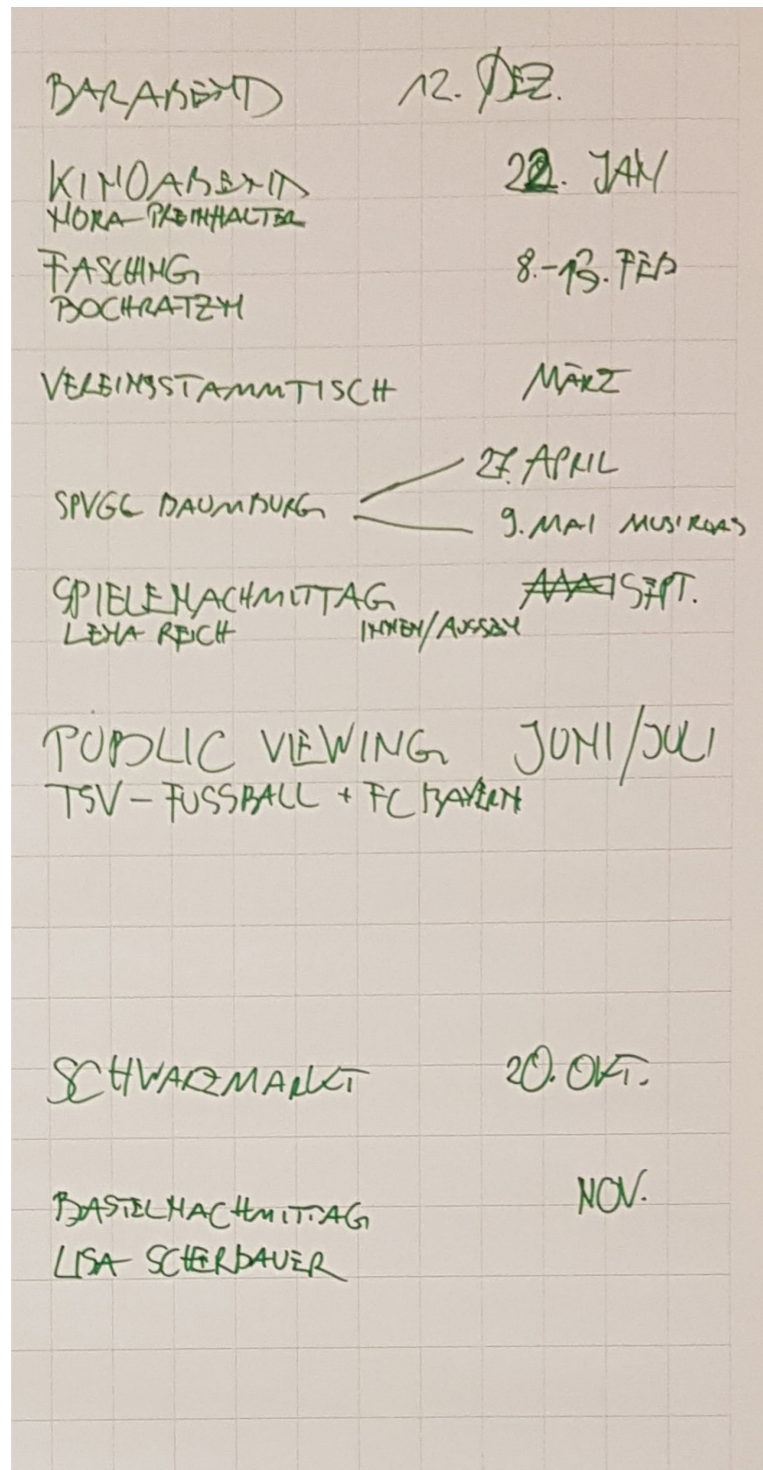 BARABEND 12. DEZ.
KINOABEND 22. JAN
NORA PREINHALTER
FASCHING 8.-13. FEB
BOCHRATZN
VEREINSSTAMMTISCH MÄRZ
27. APRIL
SPVGG BAUMBURG
9. MAI MUSIKQAS
SPIELENACHMITTAG SEPT.
LENA REICH INNEN/AUSSEN
PUBLIC VIEWING JUNI/JULI
TSV - FUSSBALL + FC BAYERN
SCHWARZMARKT 20. OKT.
BASTELNACHMITTAG NOV.
LISA SCHERBAUER